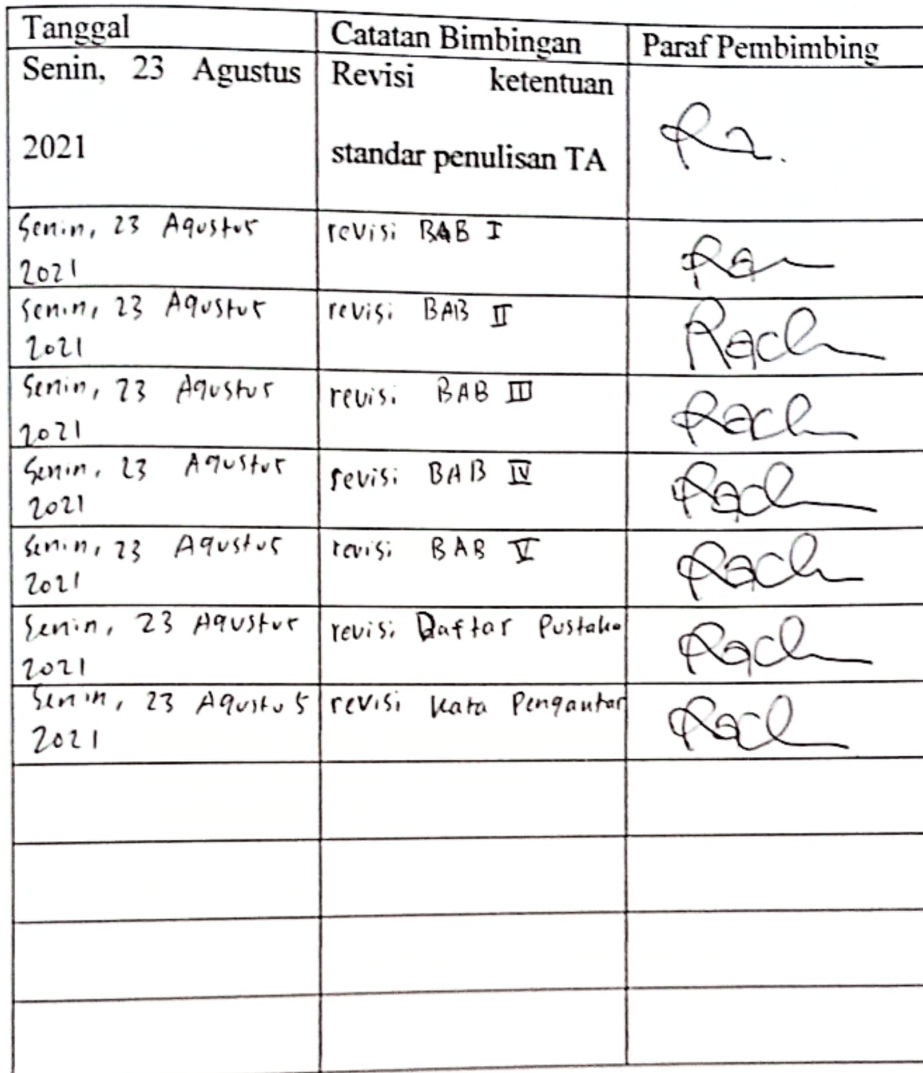 Tanggal Catatan Bimbingan Paraf Pembimbing
Senin, 23 Agustus Revisi ketentuan
2021 standar penulisan TA
Senin, 23 Agustus revisi BAB I
2021
Senin, 23 Agustus revisi BAB II
2021
Senin, 23 Agustus revisi BAB III
2021
Senin, 23 Agustus revisi BAB IV
2021
Senin, 23 Agustus revisi BAB V
2021
Senin, 23 Agustus revisi Daftar Pustaka
2021
Senin, 23 Agustus revisi Kata Pengantar
2021